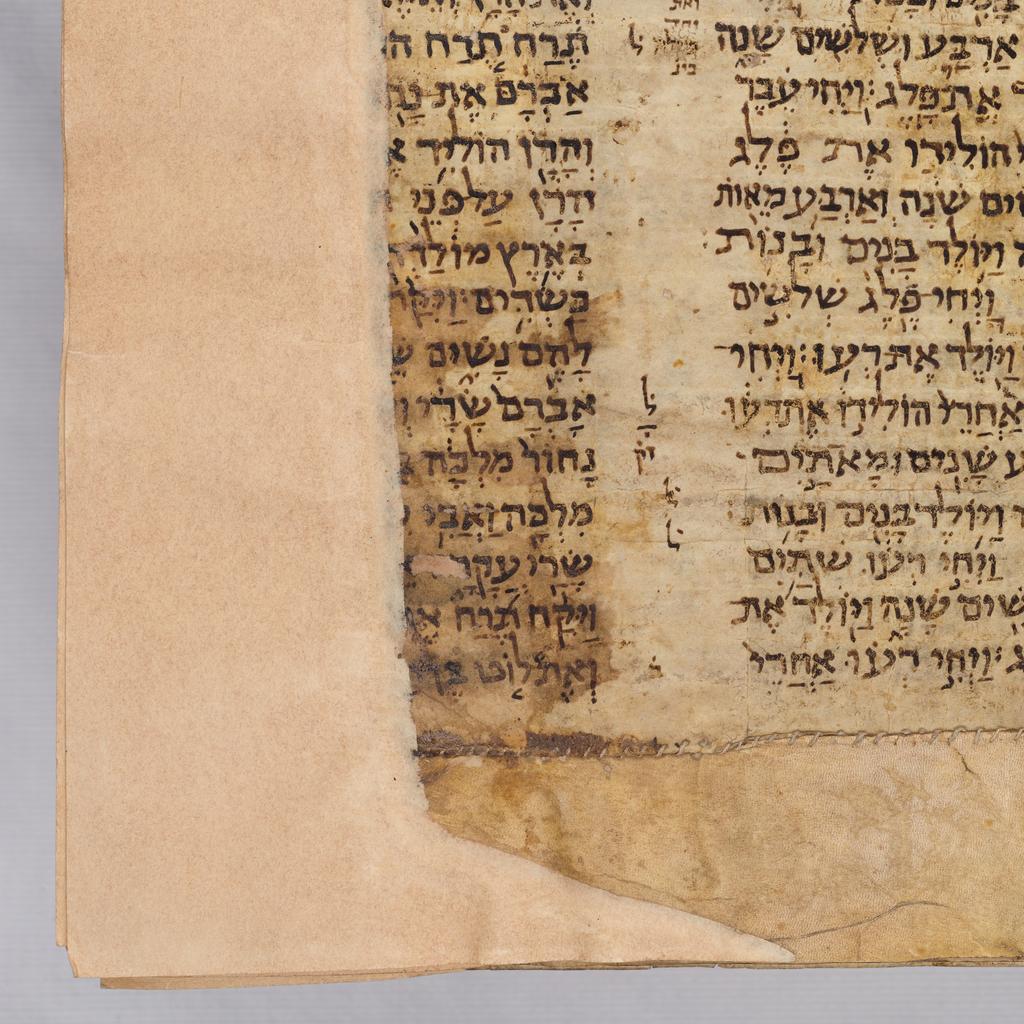 אַרְבַּע וּשְׁלֹשִׁים שָׁנָה
אֶת־פָּלֶג׃ וַיְחִי־עֵבֶר
הוֹלִידוֹ אֶת פֶּלֶג
ים שָׁנָה וְאַרְבַּע מֵאוֹת
וַיּוֹלֶד בָּנִים וּבָנוֹת
וַיְחִי־פֶלֶג שְׁלֹשִׁים
וַיּוֹלֶד אֶת־רְעוּ׃ וַיְחִי
אַחֲרֵי הוֹלִידוֹ אֶת־רְעוּ
ע שָׁנִים וּמָאתָיִם
וַיּוֹלֶד בָּנִים וּבָנוֹת
וַיְחִי רְעוּ שְׁתַּיִם
שִׁים שָׁנָה וַיּוֹלֶד אֶת
ג׃ וַיְחִי רְעוּ אַחֲרֵי
ל
ל
ל
ל
תֶּרַח תֶּרַח ה
אַבְרָם אֶת־נָ
וְהָרָן הוֹלִיד א
הָרָן עַל־פְּנֵי
בְּאֶרֶץ מוֹלַדְ
כַּשְׂדִּים׃ וַיִּקַּ
לָהֶם נָשִׁים שֵׁ
אַבְרָם שָׂרָי וְ
נָחוֹר מִלְכָּה
מִלְכָּה וַאֲבִי
שָׂרַי עֲקָרָ
וַיִּקַּח תֶּרַח אֶ
וְאֶת־לוֹט בֶּן